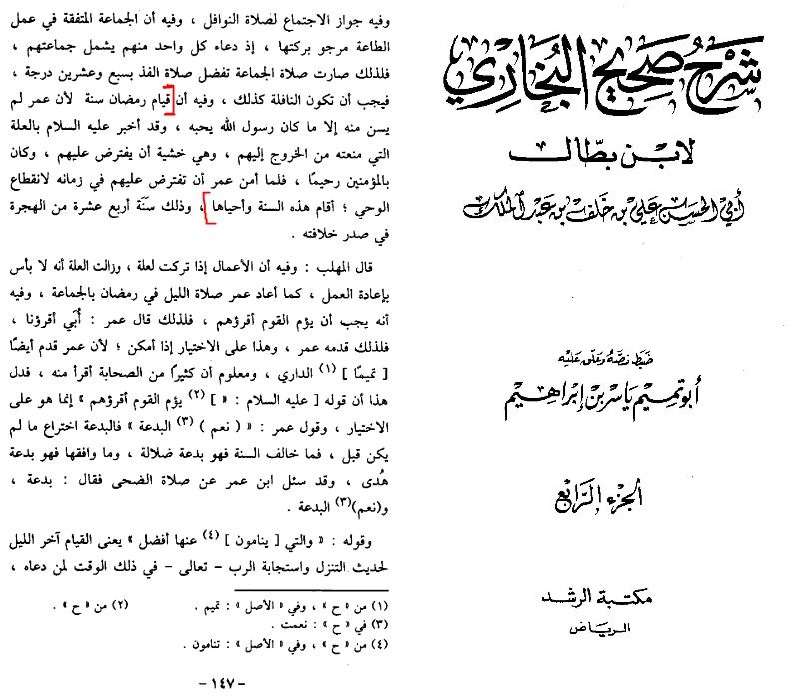 شرح صحيح البخاري
لابن بطال
أبي الحسن علي بن خلف بن عبد الملك
ضبط نصه وعلق عليه
أبو تميم ياسر بن إبراهيم
الجزء الرابع
مكتبة الرشد
الرياض
وفيه جواز الاجتماع لصلاة النوافل ، وفيه أن الجماعة المتفقة في عمل
الطاعة مرجو بركتها ، إذ دعاء كل واحد منهم يشمل جماعتهم ،
فلذلك صارت صلاة الجماعة تفضل صلاة الفذ بسبع وعشرين درجة ،
فيجب أن تكون النافلة كذلك ، وفيه أن قيام رمضان سنة لأن عمر لم
يسن منه إلا ما كان رسول الله يحبه ، وقد أخبر عليه السلام بالعلة
التي منعته من الخروج إليهم ، وهي خشية أن يفترض عليهم ، وكان
بالمؤمنين رحيمًا ، فلما أمن عمر أن تفترض عليهم في زمانه لانقطاع
الوحي ؛ أقام هذه السنة وأحياها ، وذلك سنَة أربع عشرة من الهجرة
في صدر خلافته .
قال المهلب : وفيه أن الأعمال إذا تركت لعلة ، وزالت العلة أنه لا بأس
بإعادة العمل ، كما أعاد عمر صلاة الليل في رمضان بالجماعة ، وفيه
أنه يجب أن يؤم القوم أقرؤهم ، فلذلك قال عمر : أُبَي أقرؤنا ،
فلذلك قدمه عمر ، وهذا على الاختيار إذا أمكن ؛ لأن عمر قدم أيضًا
[ تميمًا ] (١) الداري ، ومعلوم أن كثيرًا من الصحابة أقرأ منه ، فدل
هذا أن قوله [ عليه السلام : « ] (٢) يؤم القوم أقرؤهم » إنما هو على
الاختيار ، وقول عمر : « ( نعم ) (٣) البدعة » فالبدعة اختراع ما لم
يكن قبل ، فما خالف السنة فهو بدعة ضلالة ، وما وافقها فهو بدعة
هُدى ، وقد سئل ابن عمر عن صلاة الضحى فقال : بدعة ،
و(نعم)(٣) البدعة .
وقوله : « والتي [ ينامون ] (٤) عنها أفضل » يعنى القيام آخر الليل
لحديث التنزل واستجابة الرب - تعالى - في ذلك الوقت لمن دعاه ،
(١) من « ح » ، وفي « الأصل » : تميم . (٢) من « ح » .
(٣) في « ح » : نعمت .
(٤) من « ح » ، وفي « الأصل » : تنامون .
-١٤٧-